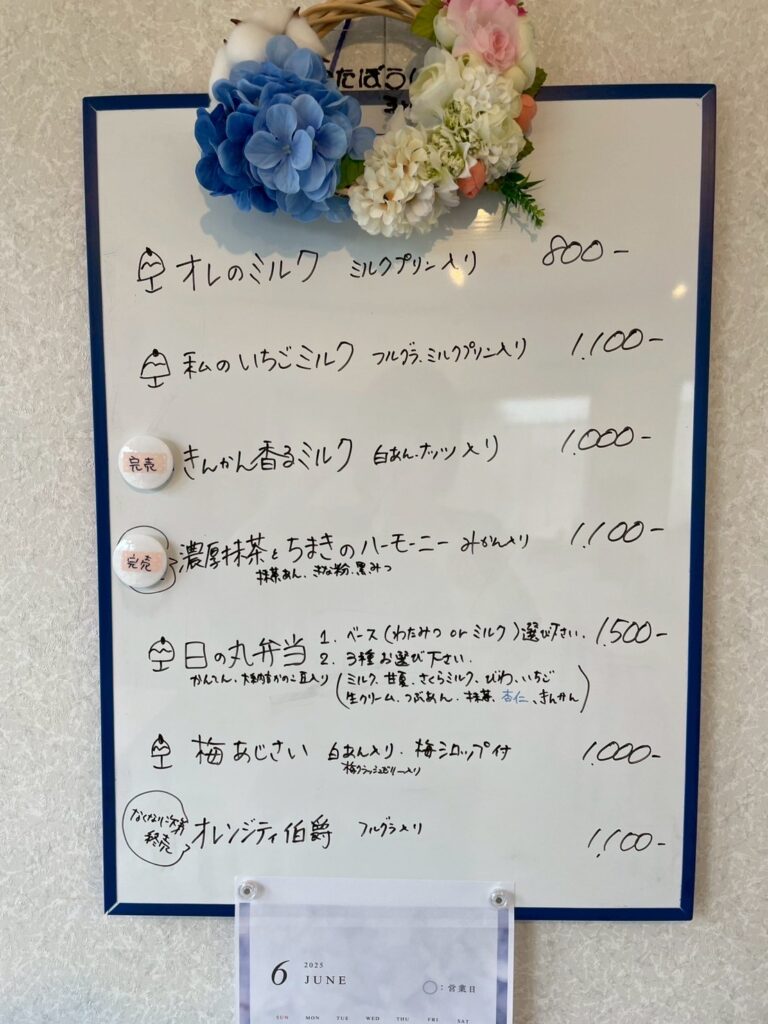 たぼう
オレのミルク ミルクプリン入り 800-
私のいちごミルク フルグラ、ミルクプリン入り 1,100-
完売 きんかん香るミルク 白あん、ナッツ入り 1,000-
完売 濃厚抹茶とちまきのハーモニー みかん入り 1,100-
抹茶あん、きな粉、黒みつ
日の丸弁当 1. ベース(わたみつ or ミルク)選び下さい、 1,500-
2. 3種お選び下さい、
かんてん、大納言かのこ豆入り (ミルク、甘夏、さくらミルク、びわ、いちご
生クリーム、つぶあん、抹茶、杏仁、きんかん)
梅あじさい 白あん入り、梅シロップ付 1,000-
梅クラッシュゼリー入り
なくなり次第
終売
オレンジティ伯爵 フルグラ入り 1,100-
6 2025
JUNE
○:営業日
SUN MON TUE WED THU FRI SAT